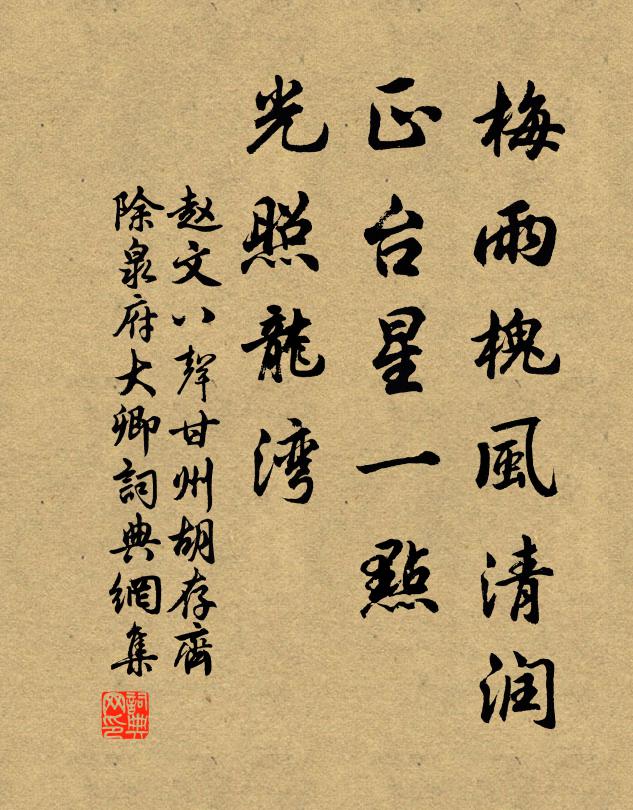 梅雨槐風清润
正台星一點
光照龍湾
赵文八聲甘州胡存齊
除泉府大卿詞典網集
詞典网印